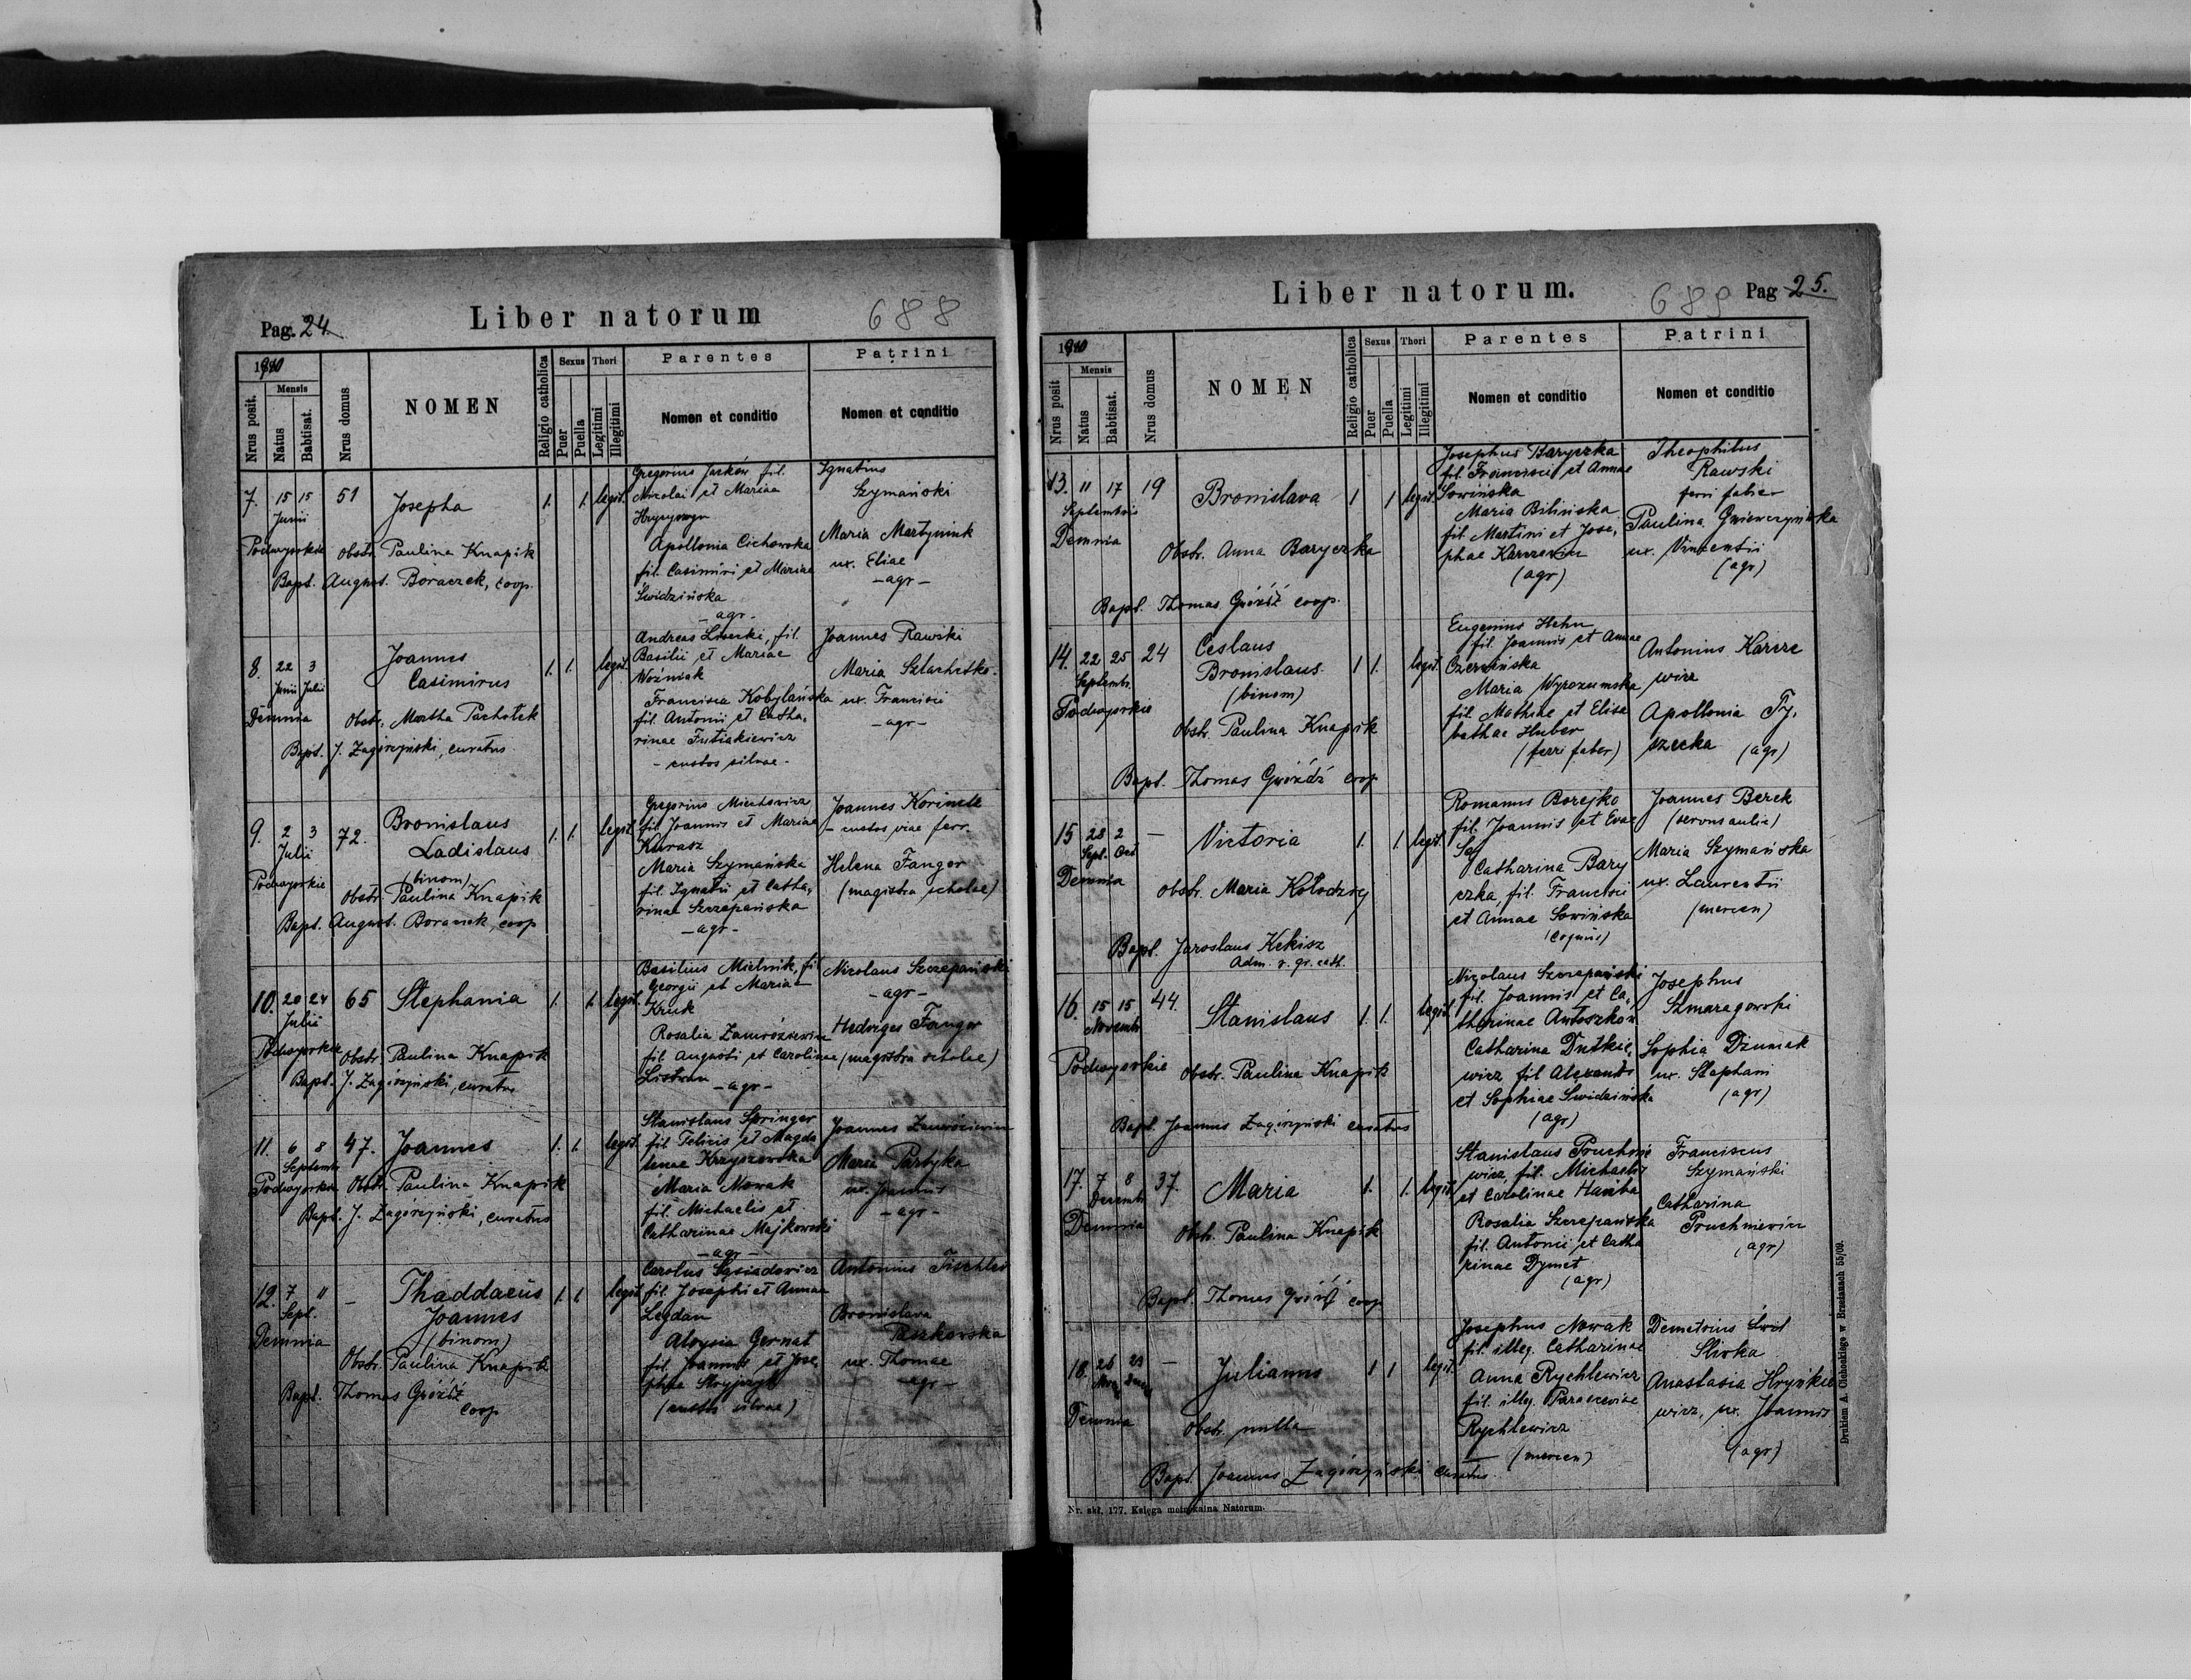 Pag. 24.
Liber natorum
688
1910
Mensis
Nrus posit.
Natus
Babtisat.
Nrus domus
NOMEN
Religio catholica
Sexus
Puer
Puella
Thori
Legitimi
Illegitimi
Parentes
Nomen et conditio
Patrini
Nomen et conditio
7. 15 15 51 Josepha 1. 1. legit.
Junii
Podwysokie Obstr. Paulina Knapik
Bapt. August. Boraczek, coop.
Gregorius Jarków fil.
Nicolai et Mariae
Apollonia Cichowska
fil. Casimiri et Mariae
Świdzińska
- agr -
Ignatius
Szymański
Maria Martyniuk
ux. Eliae
- agr -
8. 22 3 Joannes 1. 1. legit.
Junii Julii Casimirus
Demnia Obstr. Martha Pachołek
Bapt. J. Zagórzyński, curatus
Andreas Lisecki, fil.
Basilii et Mariae
Woźniak
Francisca Kobylańska
fil. Antonii et Catha,
rinae Futiakiewicz
- custos silvae -
Joannes Rawski
Maria Szlachetko
ux. Francisci
- agr -
9. 2 3 72. Bronislaus 1. 1. legit.
Julii Ladislaus
Podwysokie (binom)
Obstr. Paulina Knapik
Bapt. August. Boraczek, coop
Gregorius Miechowicz
fil. Joannis et Mariae
Kurasz
Maria Szymańska
fil. Ignatii et Catha,
rinae Szczepańska
- agr -
Joannes Korinek
- custos viae ferr.
Helena Fanger
(magistra scholae)
10. 20 24 65 Stephania 1. 1. legit.
Julii
Podwysokie Obstr. Paulina Knapik
Bapt. J. Zagórzyński, curatus
Basilius Mielnik, fil
Georgii et Mariae
Kruk
Rosalia Zawróziewicz
fil. Augusti et Carolinae
Listwan - agr -
Nicolaus Szczepański
- agr -
Hedviges Fanger
(magistra scholae)
11. 6 8 47. Joannes 1. 1. legit.
Septembr
Podwysokie Obstr. Paulina Knapik
Bapt. J. Zagórzyński, curatus
Stanislaus Springer
fil. Felicis et Magda
lenae Krzyszewska
Maria Nowak
fil. Michaelis et
Catharinae Majkowski
- agr -
Joannes Zawróziewicz
Maria Partyka
ux. Joannis
- agr -
12. 7 11 - Thaddaeus 1. 1. legit.
Sept. Joannes
Demnia (binom)
Obstr. Paulina Knapik
Bapt. Thomas Gwóźdź
coop
Carolus Sąsiadowicz
fil. Josephi et Annae
Legdan
Aloysia Gernat
fil. Joannis et Jose,
phae
(custos silvae)
Antonius Fischler
Bronislava
Paszkowska
ux. Thomae
- agr -
Liber natorum.
689
Pag 25.
1910
Mensis
Nrus posit
Natus
Babtisat.
Nrus domus
NOMEN
Religio catholica
Sexus
Puer
Puella
Thori
Legitimi
Illegitimi
Parentes
Nomen et conditio
Patrini
Nomen et conditio
13. 11 17 19 Bronislava 1 1 legit.
Septembris
Demnia
Obstr. Anna Baryczka
Bapt. Thomas Gwóźdź coop.
Josephus Baryczka
fil. Francisci et Annae
Sowińska
Maria Bilińska
fil. Martini et Jose,
phae Karczewicz
(agr)
Theophilus
Rawski
ferri faber
Paulina Gwierczyńska
ux. Vincentii
(agr)
14. 22 25 24 Ceslaus 1 1. legit.
Septembr. Bronislaus
(binom)
Podwysokie
Obstr. Paulina Knapik
Bapt. Thomas Gwóźdź coop
Eugenius Hehn
fil. Joannis et Annae
Czerwińska
Maria Wyrozumska
fil. Mathiae et Elisa
bethae Huber
(ferri faber)
Antonius Karcze
wicz
Apollonia Ty,
szecka (agr)
15 28 2 - Victoria 1. 1. legit.
Sept. Oct
Demnia
Obstr. Maria Kołodzej
Bapt. Jaroslaus Kekisz
Adm. r. gr. cath.
Romanus Borejko
fil. Joannis et Evae
Catharina Bary
czka, fil. Francisci
et Annae Sowińska
Joannes Berek
(servus aulic)
Maria Szymańska
ux. Laurentii
(mercen)
16. 15 15 44. Stanislaus 1. 1. legit.
Novembr
Podwysokie Obstr. Paulina Knapik
Bapt. Joannes Zagórzyński curatus
Nicolaus Szczepański
fil. Joannis et Ca,
tharinae Antoszków
Catharina Dutkie,
wicz fil Alexandri
et Sophiae Świdzińska
(agr)
Josephus
Szmaragowski
Sophia Dziuniak
ux. Stephani
(agr)
17. 7 8 37. Maria 1. 1. legit.
Decembr
Demnia
Obstr. Paulina Knapik
Bapt. Thomas Gwóźdź coop
Stanislaus Pruchnie
wicz, fil. Michaelis
et Carolinae
Rosalia Szczepańska
fil. Antonii et Catha
rinae Dymet
(agr)
Franciscus
Szymański
Catharina
Pruchniewicz
(agr)
18. 26 - Julianus 1 1 legit.
Demnia
Obstr. nulla
Bapt. Joannes Zagórzyński curatus.
Josephus Nowak
fil. illeg. Catharinae
Anna Rychlewicz
fil. illeg. Parasceviae
Rychlewicz
(mercen)
Demetrius
Śliwka
Anastasia Hryńkie
wicz, ux. Joannis
(agr)
Nr. skł. 177. Księga metrykalna Natorum.
Drukiem A. Cichockiego w Brzeżanach 55/09.